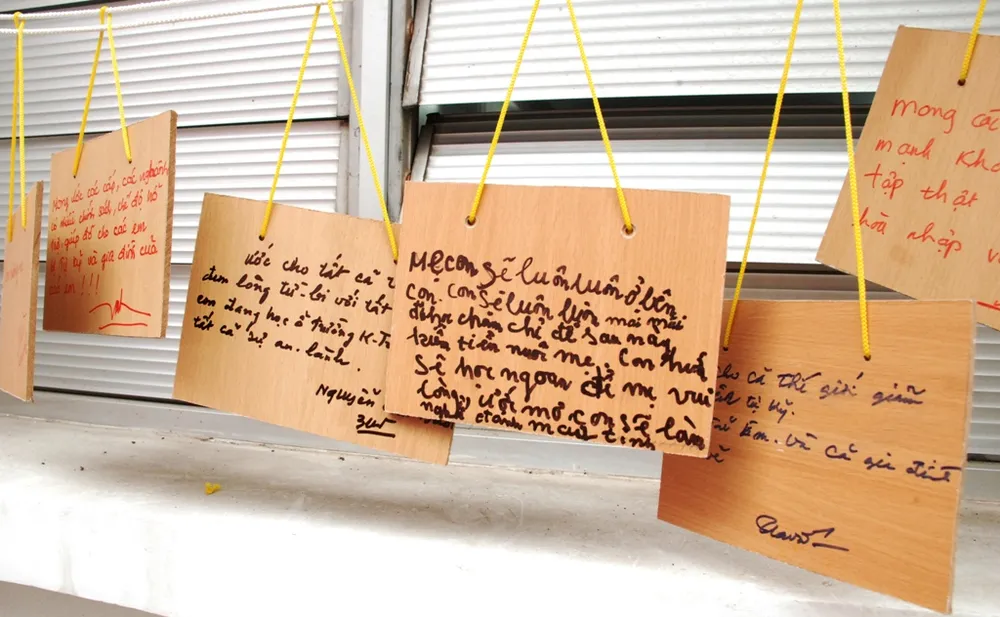 Mong ước các cấp, các nghành
có nhiều chính sách, chế độ hỗ
trợ, giúp đỡ cho các em
bị tự kỷ và gia đình của
các em !!!
Ước cho tất cả
đem lòng từ-bi với tất
em đang học ở trường K-T
tất cả sự an-lành.
Nguyễn
Mẹ con sẽ luôn luôn ở bên
con. con sẽ luôn luôn mãi mãi
đi học chăm chỉ để sau này
tiền nuôi mẹ. con hứa
Sẽ học ngoan để mẹ vui
lòng, ước mơ con sẽ làm
nghề đánh máy tính
cho cả thế giới giảm
tự kỷ.
Em. và cả gia đình
Mong các
mạnh
tập thật
hòa nhập